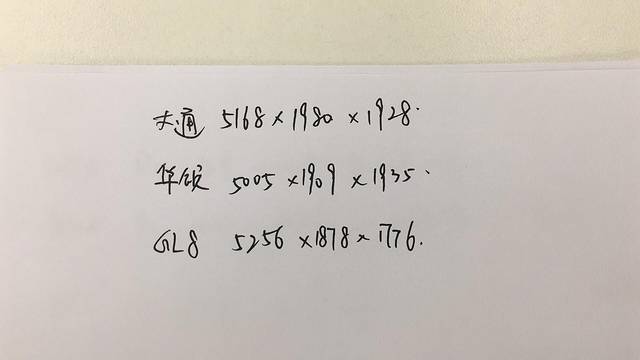 大通 5168×1980×1928.
华颂 5005×1909×1935.
GL8 5256×1878×1776.